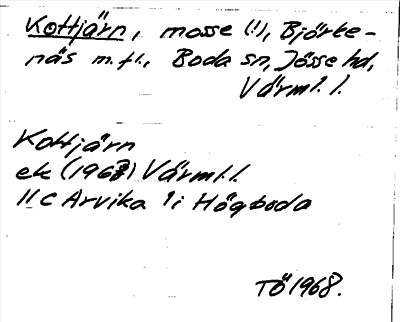 Kottjärn, mosse (!), Björke-
näs m.fl., Boda sn, Jösse hd,
Värml. l.
Kottjärn
ek (1968) Värml.l.
11 C Arvika 1i Högboda
TÖ 1968.